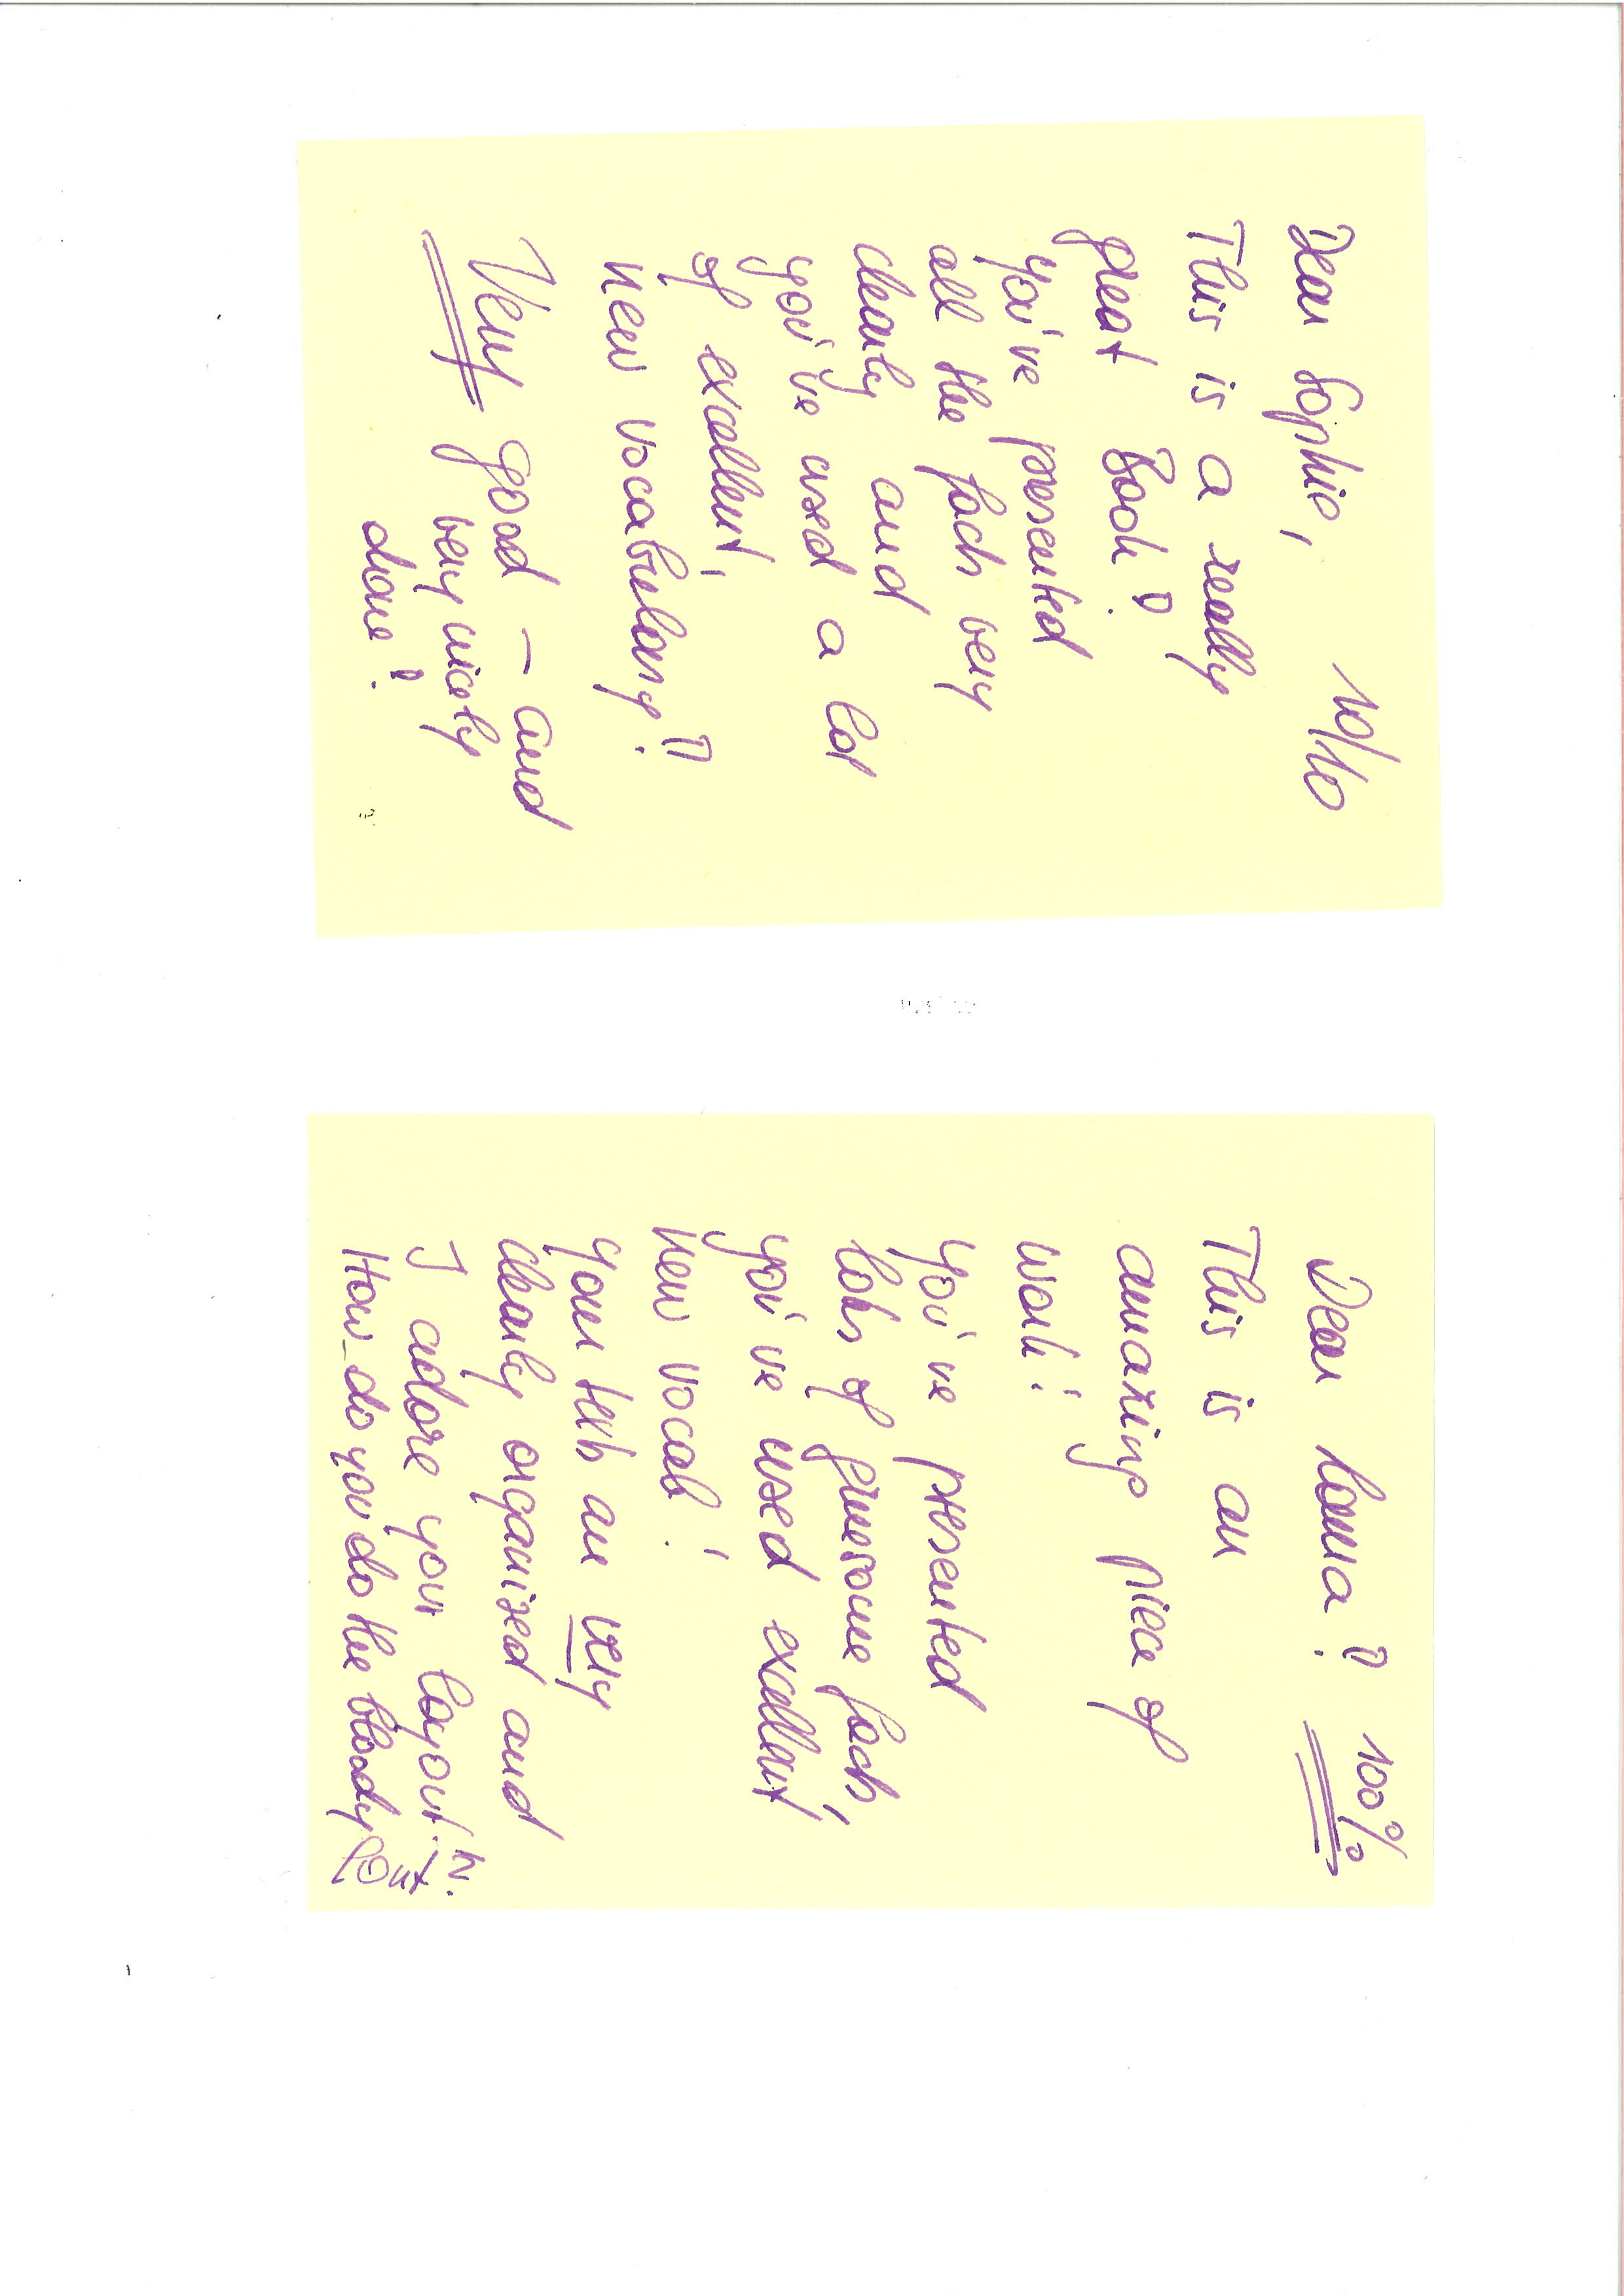 Dear Sophie, 10/10
This is a really
great Book!
you've presented
all the facts very
clearly and
you've used a lot
of excellent,
new vocabulary!
Very good – and
very nicely
done!
Dear! 100%
This is an
amazing piece of
work!
you've presented
lots of gruesome facts,
you've used excellent,
new vocab!
your texts are very
clearly organized and
I adore your layout!
How do you do the bloody font?